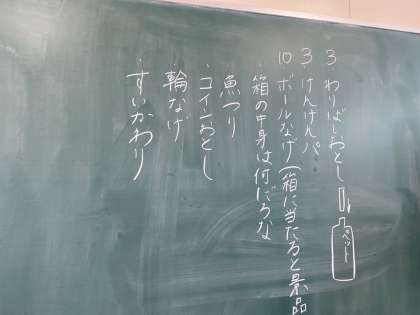 3 わりばしおとし
ペット
3 けんけんパ
10 ボールなげ(箱に当たると景品
・箱の中身は何だろな
・魚つり
・コインおとし
・輪なげ
・すいかわり